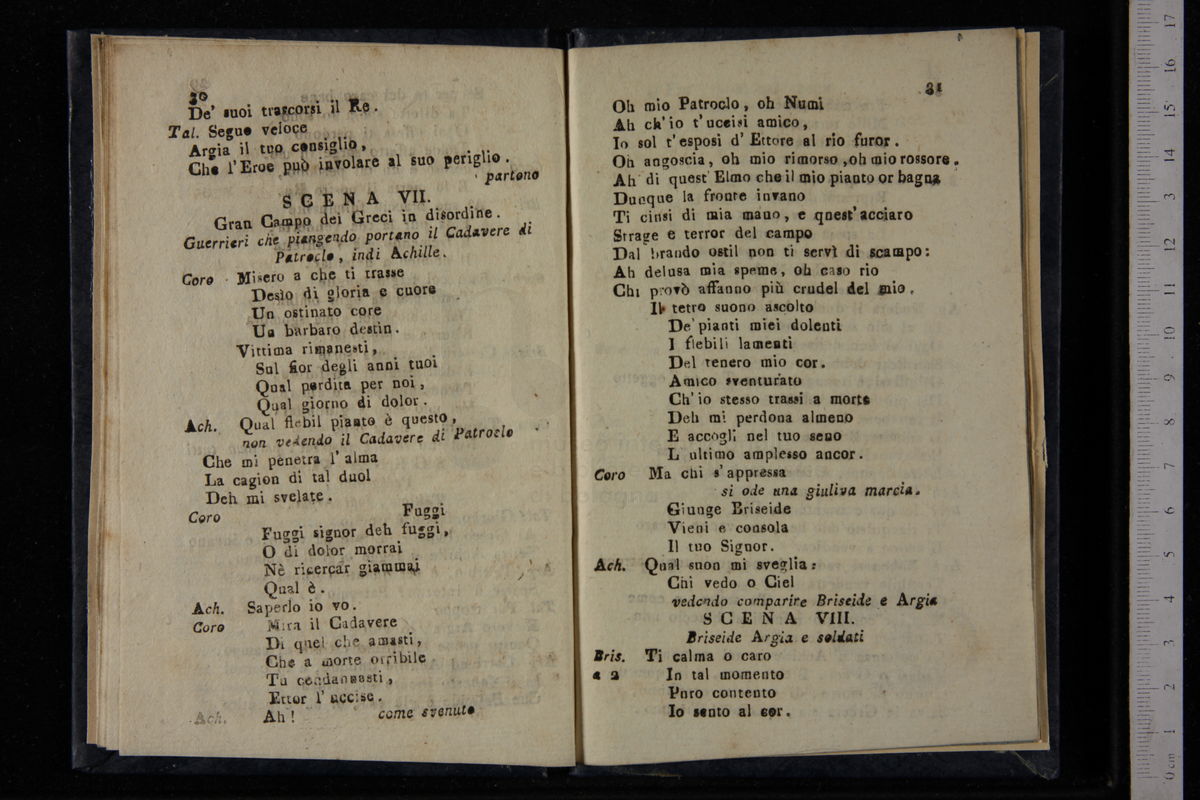 30
De' suoi trascorsi il Re.
Tal. Segue veloce
Argia il tuo consiglio,
Che l'Eroe può involare al suo periglio.
partono
SCENA VII.
Gran Campo dei Greci in disordine.
Guerrieri che piangendo portano il Cadavere di
Patroclo, indi Achille.
Coro Misero a che ti trasse
Desìo di gloria e cuore
Un ostinato core
Un barbaro destin.
Vittima rimanesti,
Sul fior degli anni tuoi
Qual perdita per noi,
Qual giorno di dolor.
Ach. Qual flebil pianto è questo,
non vedendo il Cadavere di Patroclo
Che mi penetra l'alma
La cagion di tal duol
Deh mi svelate.
Coro Fuggi
Fuggi signor deh fuggi,
O di dolor morrai
Nè ricercar giammai
Qual è.
Ach. Saperlo io vo.
Coro Mira il Cadavere
Di quel che amasti,
Che a morte orribile
Tu condannasti,
Ettor l'uccise.
Ach. Ah! come svenuto
31
Oh mio Patroclo, oh Numi
Ah ch'io t'uccisi amico,
Io sol t'esposi d'Ettore al rio furor.
Oh angoscia, oh mio rimorso, oh mio rossore.
Ah di quest'Elmo che il mio pianto or bagna
Dunque la fronte invano
Ti cinsi di mia mano, e qnest'acciaro
Strage e terror del campo
Dal brando ostil non ti servì di scampo:
Ah delusa mia speme, oh caso rio
Chi provò affanno più crudel del mio.
Il tetro suono ascolto
De'pianti miei dolenti
I flebili lamenti
Del tenero mio cor.
Amico sventurato
Ch'io stesso trassi a morte
Deh mi perdona almeno
E accogli nel tuo seno
L ultimo amplesso ancor.
Coro Ma chi s'appressa
si ode una giuliva marcia.
Giunge Briseide
Vieni e consola
Il tuo Signor.
Ach. Qual suon mi sveglia:
Chi vedo o Ciel
vedendo comparire Briseide e Argia
SCENA VIII.
Briseide Argia e soldati
Bris. Ti calma o caro
a 2 In tal momento
Puro contento
Io sento al cor.
0 cm 1 2 3 4 5 6 7 8 9 10 11 12 3 14 15 16 17